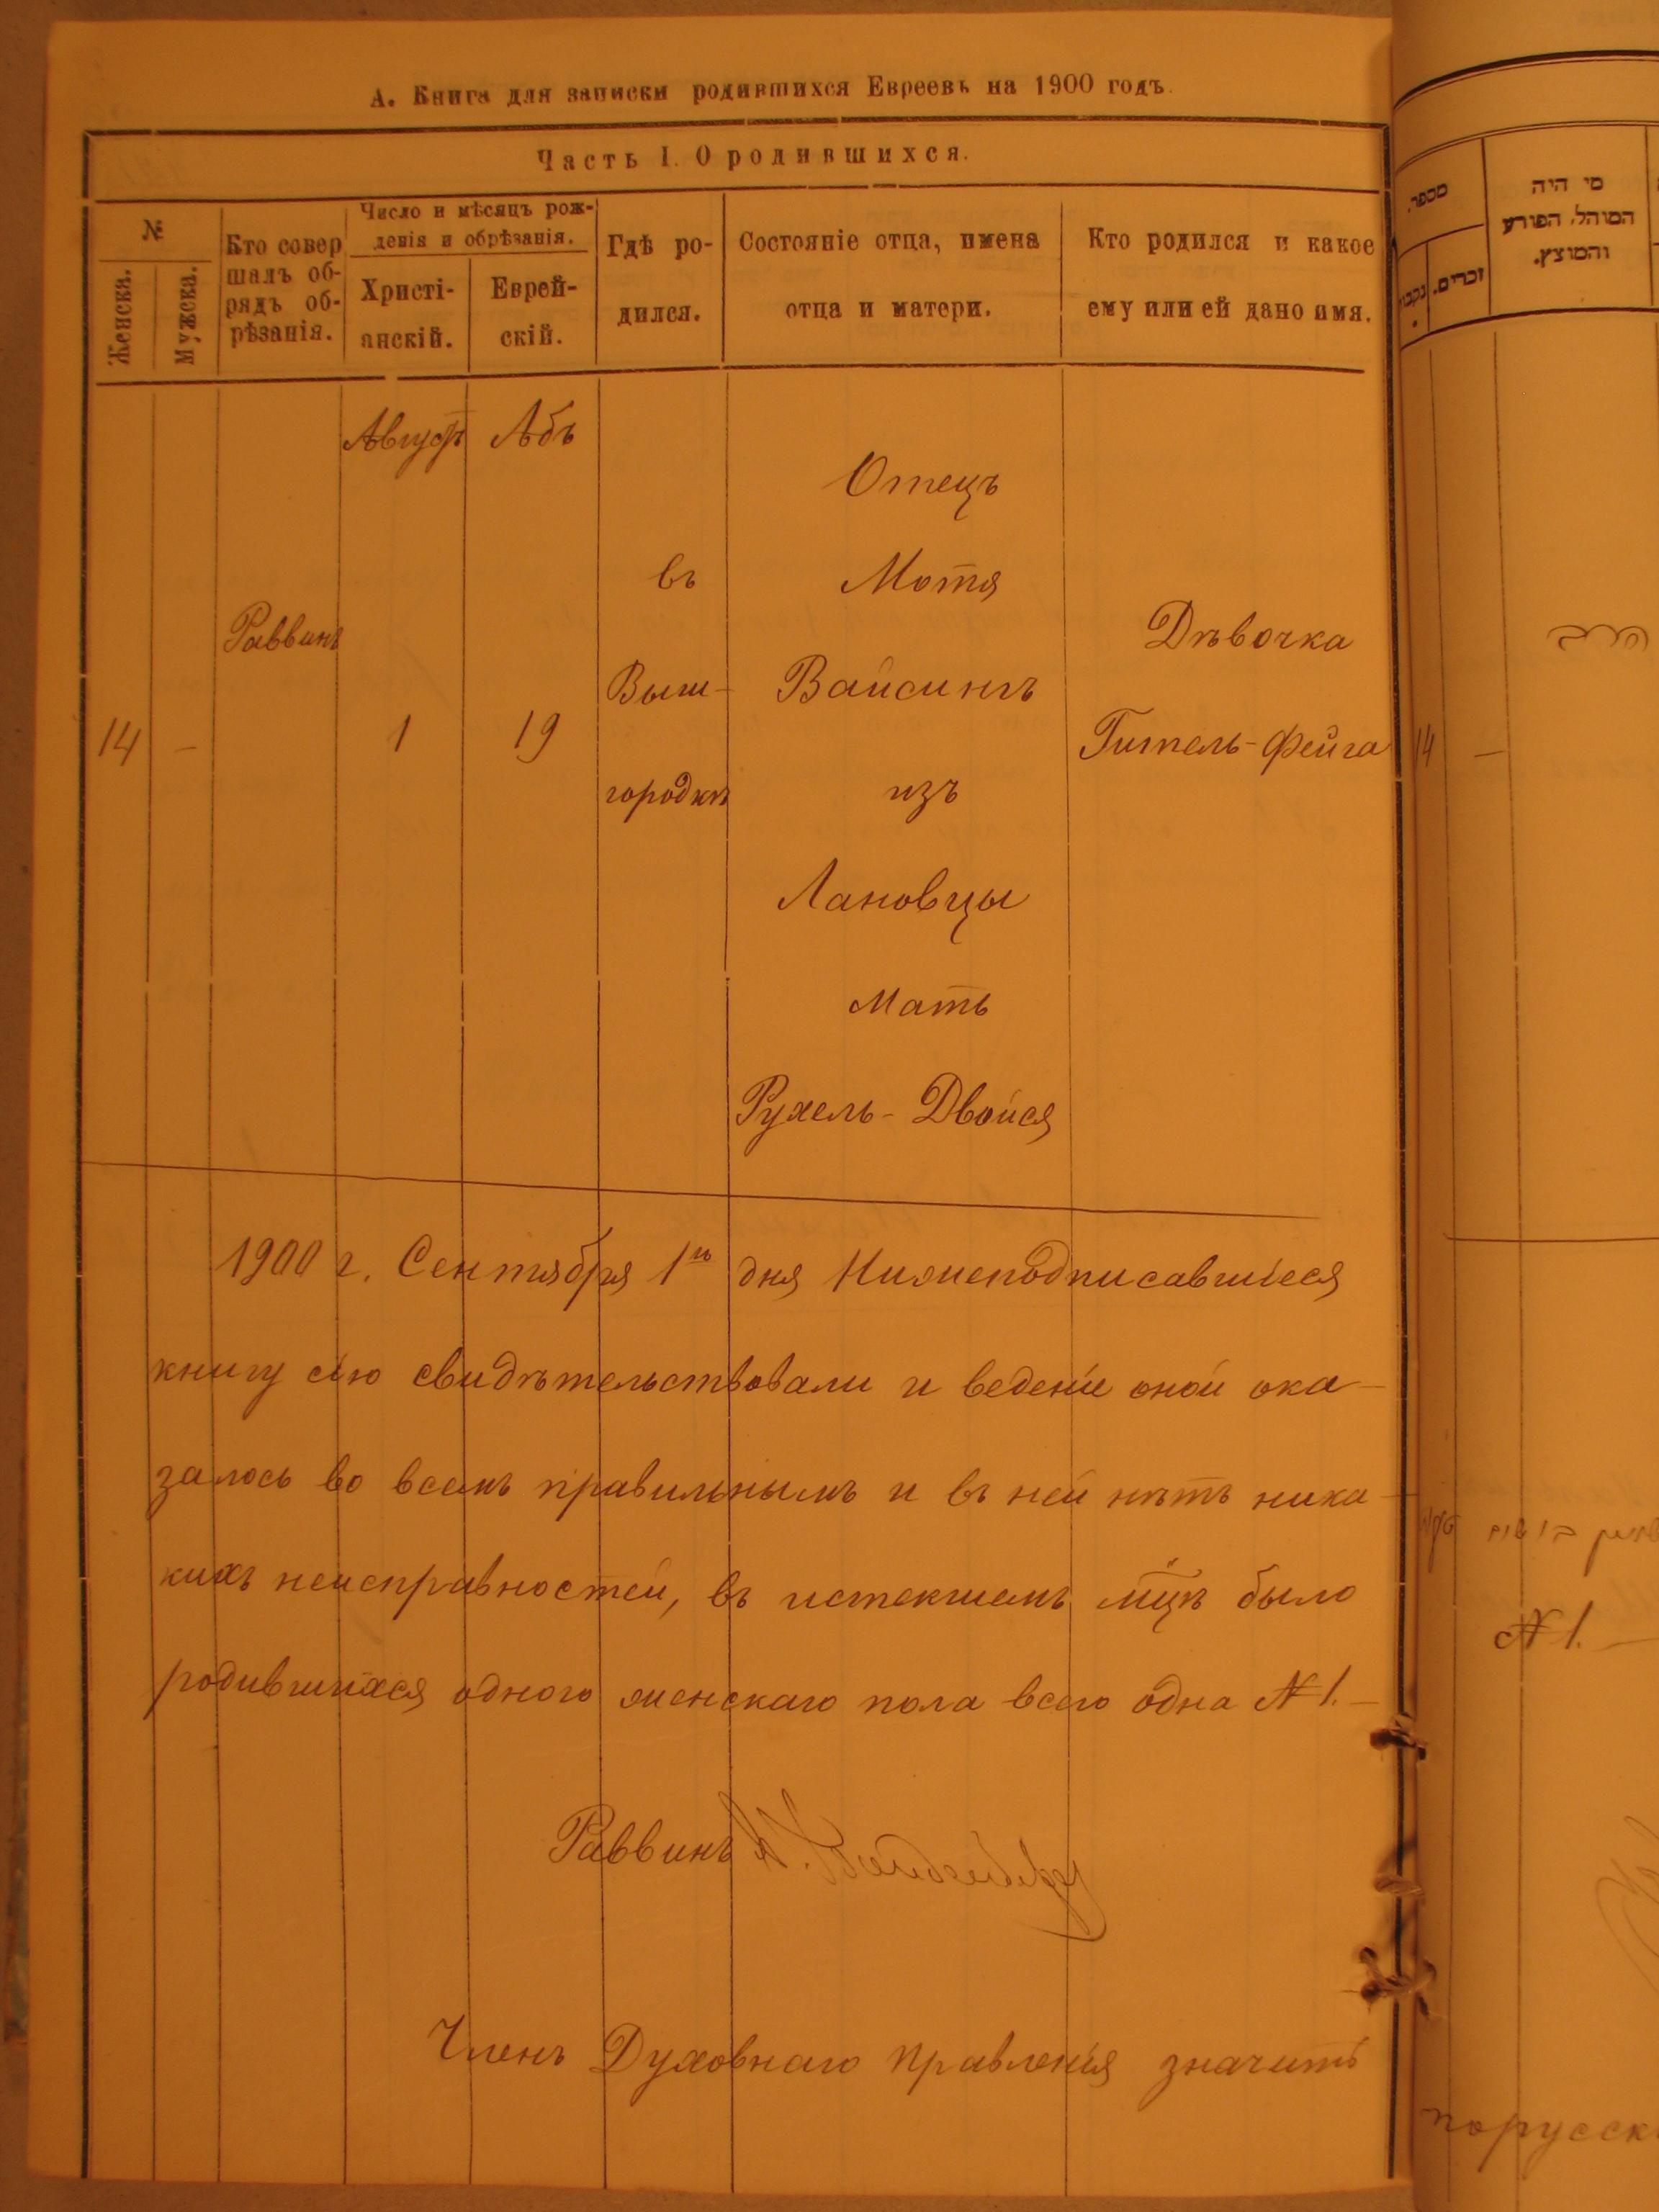 А. Книга для записки родившихся Евреевъ на 1900 годъ.
Часть I. О родившихся.
№
Женска.
Мужска.
Кто совер
шалъ об-
рядъ об-
рѣзанія.
Число и мѣсяцъ рож-
денія и обрѣзанія.
Христі-
анскій.
Еврей-
скій.
Гдѣ ро-
дился.
Состояніе отца, имена
отца и матери.
Кто родился и какое
ему или ей дано имя.
14
—
Раввинъ
Августъ
1
Абъ
19
въ
Выш-
городкѣ
Отецъ
Мотя
Вайсингъ
изъ
Лановцы
Мать
Рухель-Двойся
Дѣвочка
Гитель-Фейга
1900 г. Сентября 1го дня Нижеподписавшіеся
книгу сію свидѣтельствовали и веденіе оной ока-
залось во всемъ правильнымъ и въ ней нѣтъ ника-
кихъ неисправностей, въ истекшемъ мцѣ было
родившихся одного женскаго пола всего одна №1.—
Раввинъ
Членъ Духовнаго правленія значитъ
מספר.
נקבות.
זכרים.
מי היה
המוהל, הפורע
והמוצץ.
14
—
הרב
№1.—
порусск